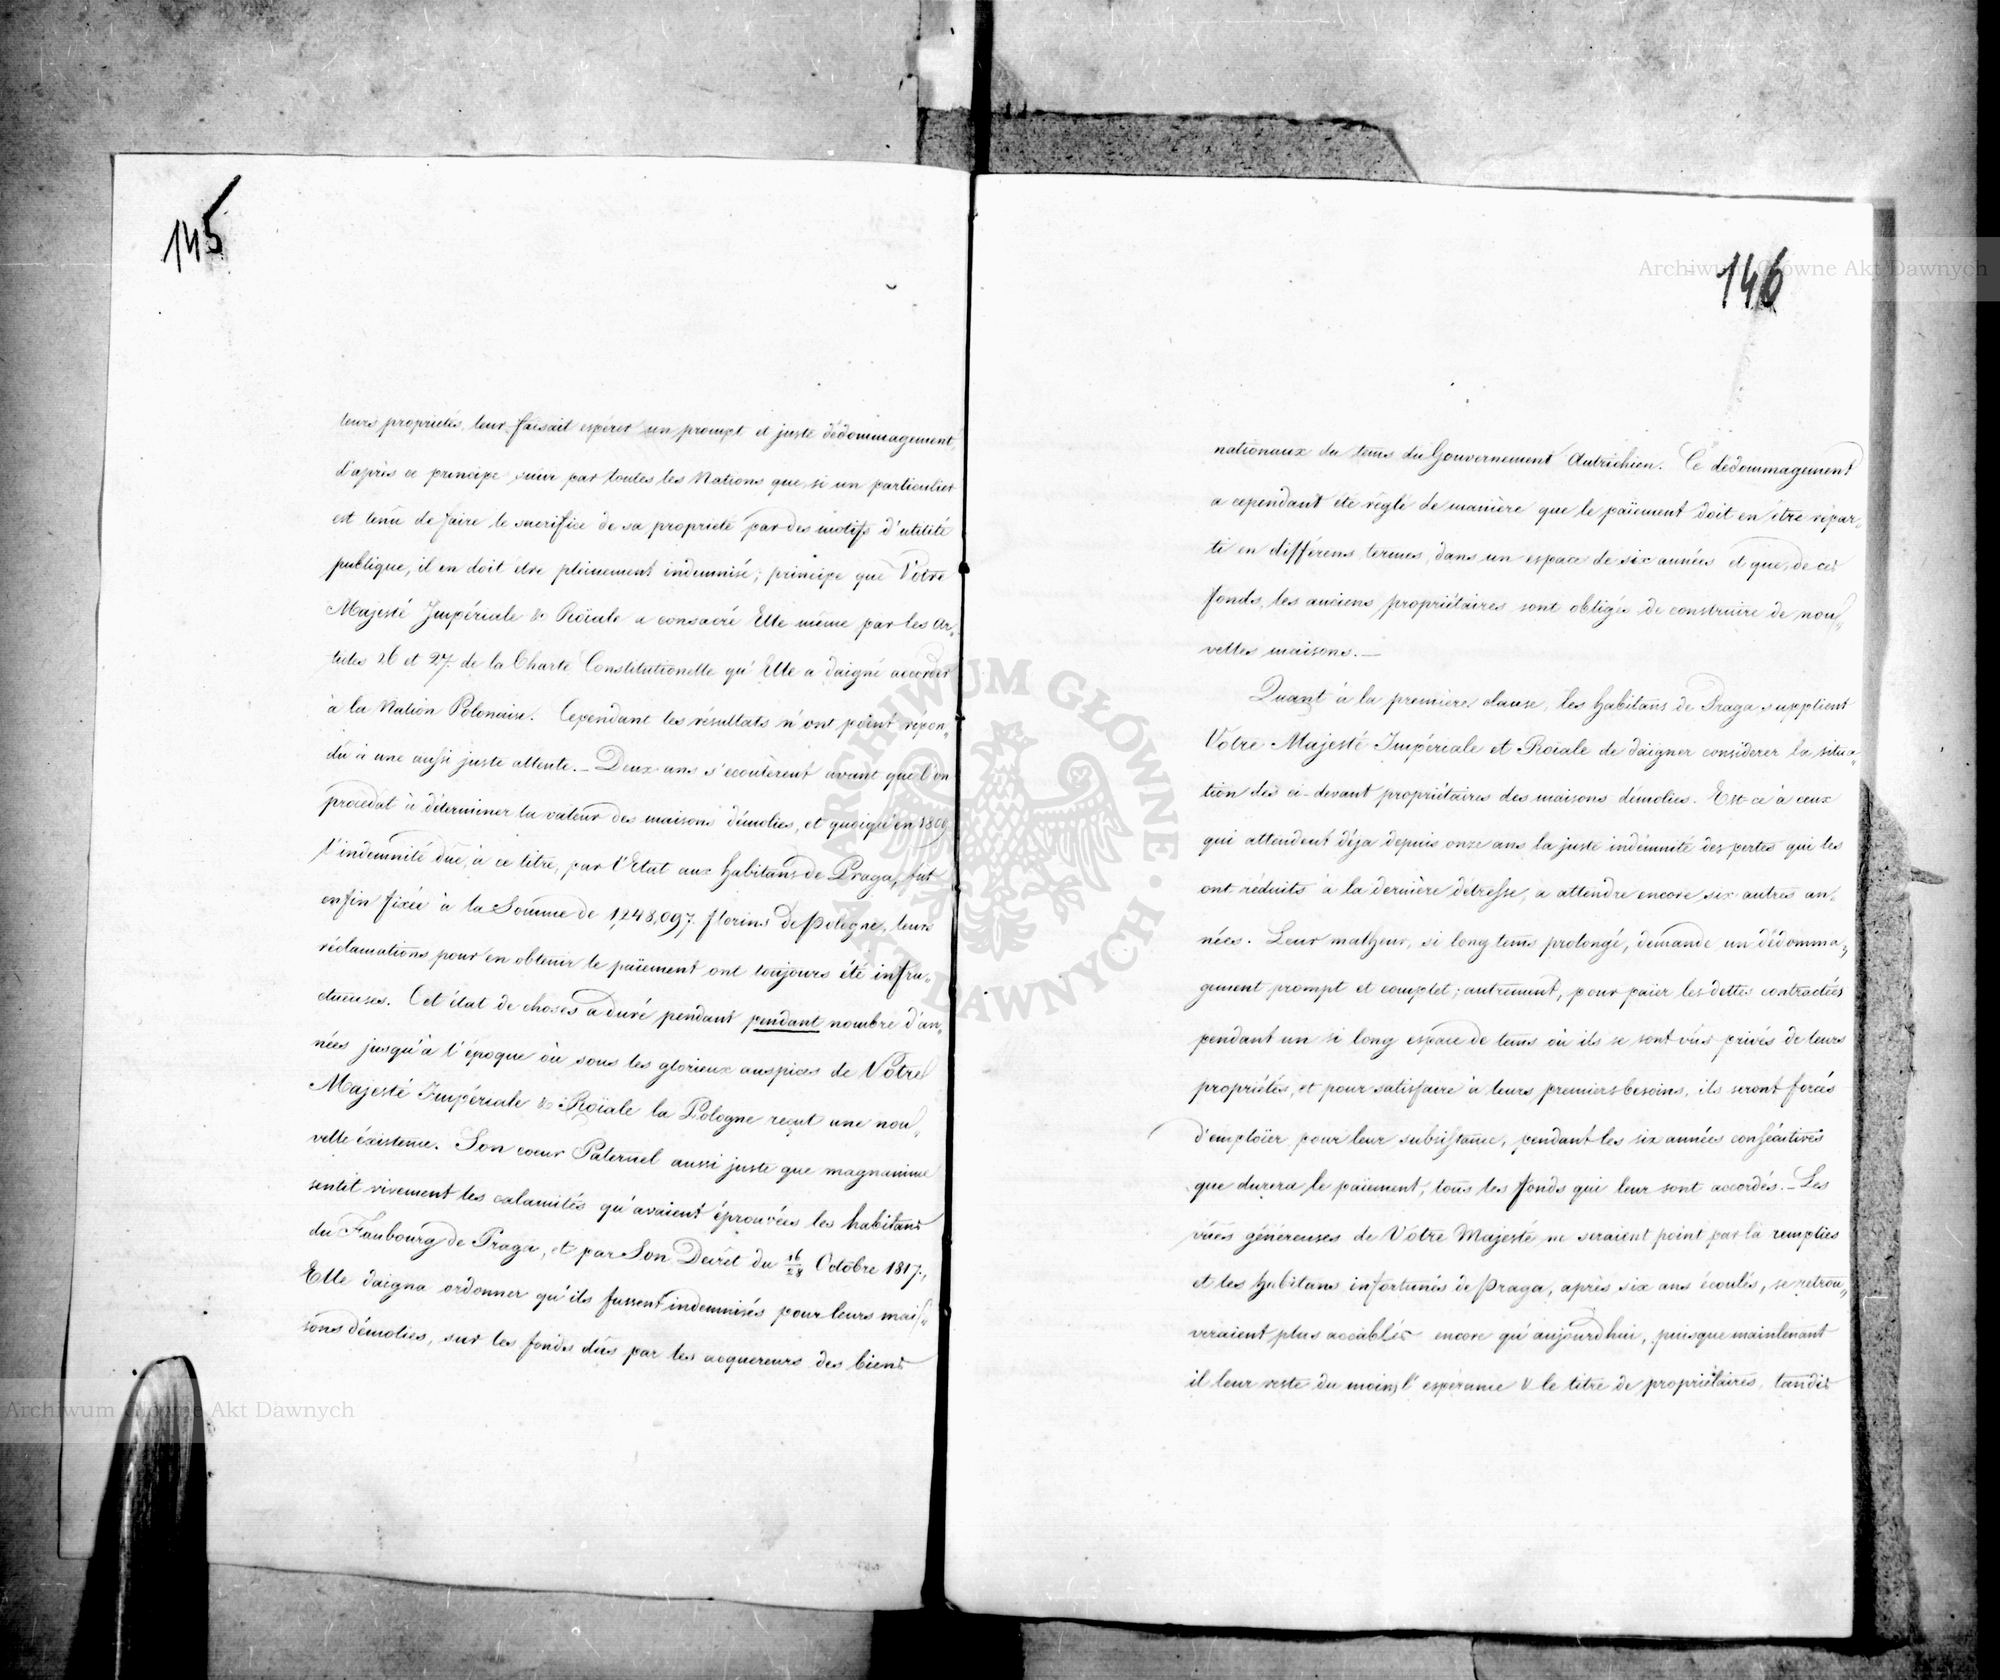 145
leurs propriétés, leur faisait espérer un prompt et juste dédommagement,
d'après ce principe suivi par toutes les Nations que, si un particulier
est tenu de faire le sacrifice de sa propriété par des motifs d'utilité
publique, il en doit être pleinement indemnisé; principe que Votre
Majesté Impériale & Roïale a consacré Elle même par les Ar„
ticles 26 et 27. de la Charte Constitutionelle qu'Elle a daigné accorder
à la Nation Polonaise. Cependant les résultats n'ont point répon„
du à une aussi juste attente. – Deux ans s'écoulèrent avant que l'on
procédat à déterminer la valeur des maisons démolies, et quoiqu'en 1809
l'indemnité düe, à ce titre, par l'Etat aux habitans de Praga, fut
enfin fixée à la Somme de 1,248,097. florins de Pologne, leurs
réclamations pour en obtenir le païement ont toujours été infru„
ctueuses. Cet état de choses a duré pendant pendant nombre d'an„
nées jusqu'à l'époque où sous les glorieux auspices de Votre
Majesté Impériale & Roïale la Pologne reçut une nou„
velle éxistence. Son coeur Paternel aussi juste que magnanime
sentit vivement les calamités qu'avaient éprouvées les habitans
du Faubourg de Praga, et par Son Decrét du 16/28 Octobre 1817.,
Elle daigna ordonner qu'ils fussent indemnisés pour leurs mai„
sons démolies, sur les fonds dûs par les acquereurs des biens
146
nationaux du tems du Gouvernement Autrichien. Ce dédommagement
a cependant été réglé de manière que le païement doit en être répar„
ti en différens termes, dans un espace de six années et que, de ces
fonds, les anciens propriétaires sont obligés de construire de nou„
velles maisons. —
Quant à la première clause, les habitans de Praga supplient
Votre Majesté Impériale et Roïale de daigner considerer la situa„
tion des ci-devant propriétaires des maisons démolies. Est-ce à ceux
qui attendent déja depuis onze ans la juste indémnité des pertes qui les
ont réduits à la dernière détresse, a attendre encore six autres an„
nées. Leur malheur, si long tems prolongé, demande un dédomma„
gement prompt et complet; autrement, pour païer les dettes contractées
pendant un si long espace de tems où ils se sont vûs privés de leurs
propriétés, et pour satisfaire à leurs premiers besoins, ils seront forcés
d'emploïer pour leur subsistance, pendant les six années conséutives
que durera le païement, tous les fonds qui leur sont accordés. – Les
vües généreuses de Votre Majesté ne seraient point par là remplies
et les habitans infortunés de Praga, après six ans écoulés, se retrou„
veraient plus accablés encore qu'aujourd'hui, puisque maintenant
il leur reste du moins l'espérance & le titre de propriétaires, tandis
Archiwum Główne Akt Dawnych
Archiwum Główne Akt Dawnych
ARCHIWUM GŁÓWNE AKT DAWNYCH